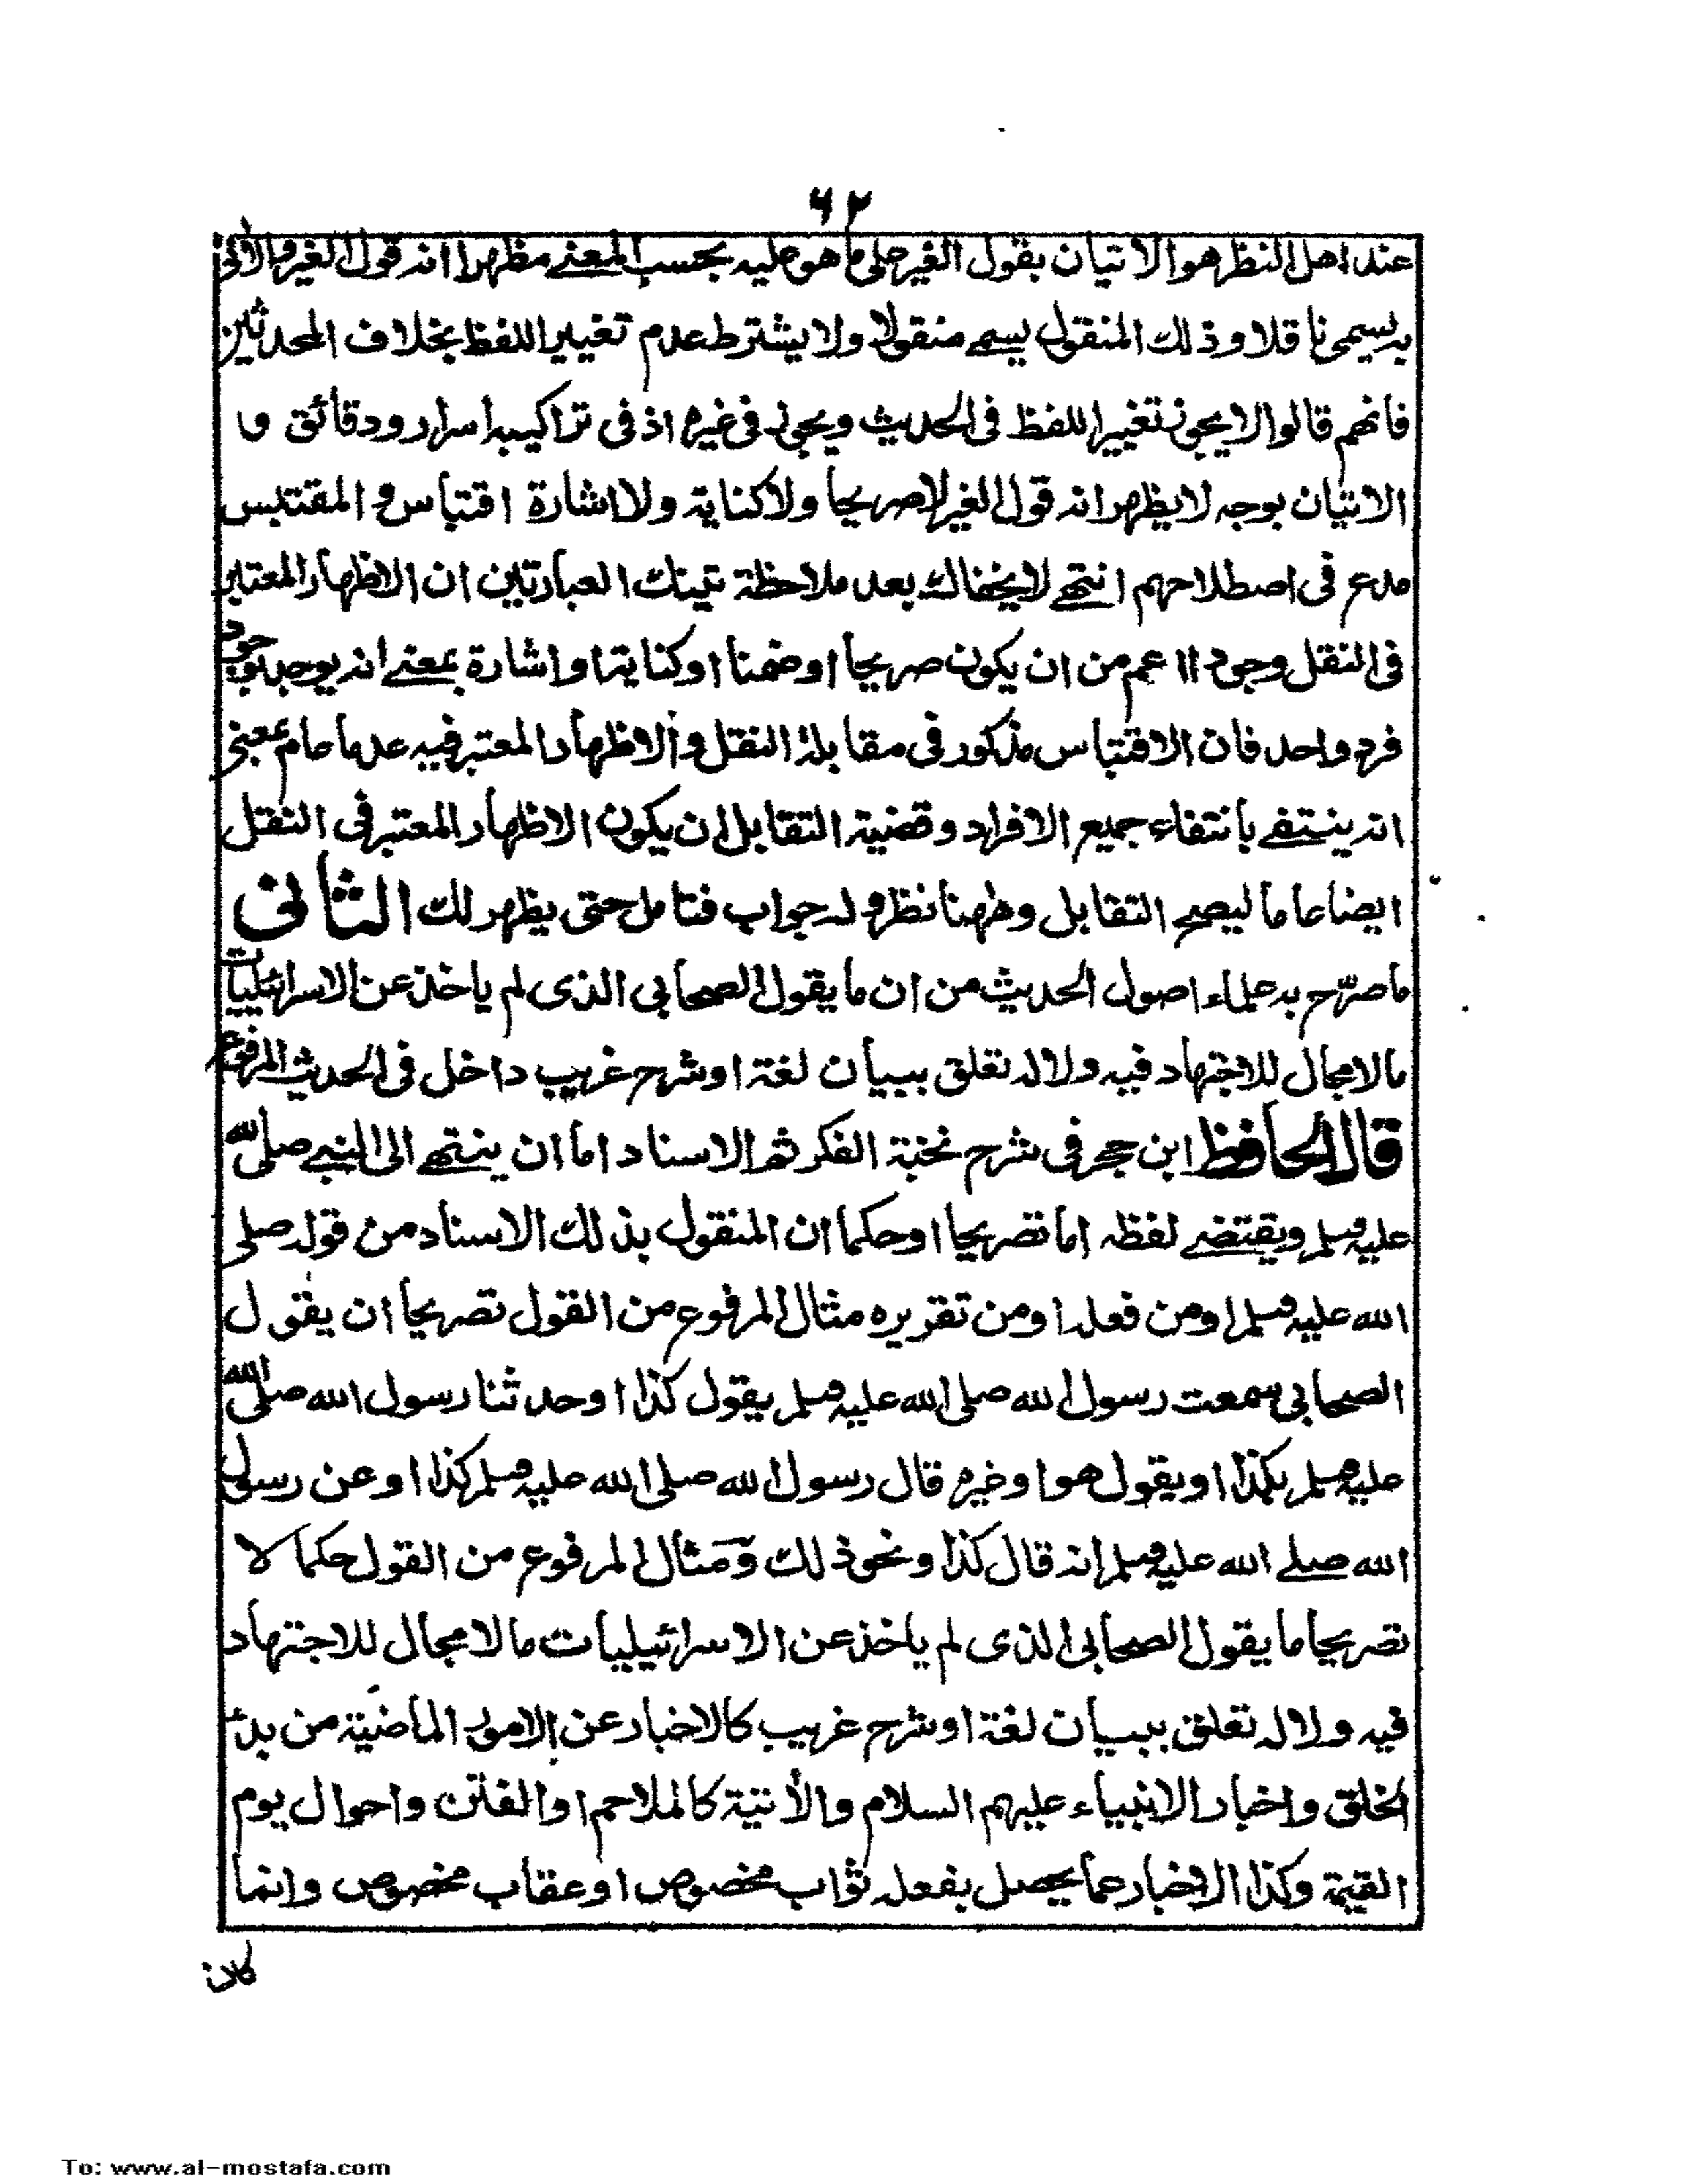 ٦٢
عند اهل النظر هو الاتيان بقول الغير على ما هو عليه بحسب المعنے مظهرا انه قول الغير والاٰتى
به يسمى ناقلا وذلك المنقول يسمے منقولا ولا يشترط عدم تغيير اللفظ بخلاف المحدثين
فانهم قالوا لا يجوز تغيير اللفظ فى الحديث ويجوز فى غيره اذ فى تراكيبه اسرار ودقائق و
الاتيان بوجه لا يظهر انه قول الغير لا صريحا ولا كناية ولا اشارة اقتباس و المقتبس
مدع فى اصطلاحهم انتهے لا يخفاك بعد ملاحظة تينك العبارتين ان الاظهار المعتبر
فى النقل وجودا اعم من ان يكون صريحا او ضمنا او كناية او اشارة بمعنے انه يوجد بوجود
فرد واحد فان الاقتباس مذكور فى مقابلة النقل والاظهار المعتبر فيه عدما عام بمعنى
انه ينتفے بانتفاء جميع الافراد وقضية التقابل ان يكون الاظهار المعتبر فى النقل
ايضا عاما ليصح التقابل وههنا نظر وله جواب فتامل حتى يظهر لك الثانى
ما صرّح به علماء اصول الحديث من ان ما يقول الصحابى الذى لم ياخذ عن الاسرائيليات
ما لا مجال للاجتهاد فيه ولا له تعلق ببيان لغة او شرح غريب داخل فى الحديث المرفوع
قال الحافظ ابن حجر فى شرح نخبة الفكر ثم الاسناد اما ان ينتهے الى النبے صلى الله
عليه وسلم ويقتضے لفظه اما تصريحا او حكما ان المنقول بذلك الاسناد من قوله صلى
الله عليه وسلم او من فعله او من تقريره مثال المرفوع من القول تصريحا ان يقول
الصحابى سمعت رسول الله صلى الله عليه وسلم يقول كذا او حدثنا رسول الله صلى الله
عليه وسلم بكذا او يقول هو او غيره قال رسول الله صلى الله عليه وسلم كذا او عن رسول
الله صلے الله عليه وسلم انه قال كذا ونحو ذلك ومثال المرفوع من القول حكما لا
تصريحا ما يقول الصحابى الذى لم ياخذ عن الاسرائيليات ما لا مجال للاجتهاد
فيه ولا له تعلق ببيان لغة او شرح غريب كالاخبار عن الامور الماضية من بدء
الخلق واخبار الانبياء عليهم السلام والاٰتية كالملاحم او الفتن واحوال يوم
القيمة وكذا الاخبار عما يحصل بفعله ثواب مخصوص او عقاب مخصوص وانما
كان
To: www.al-mostafa.com